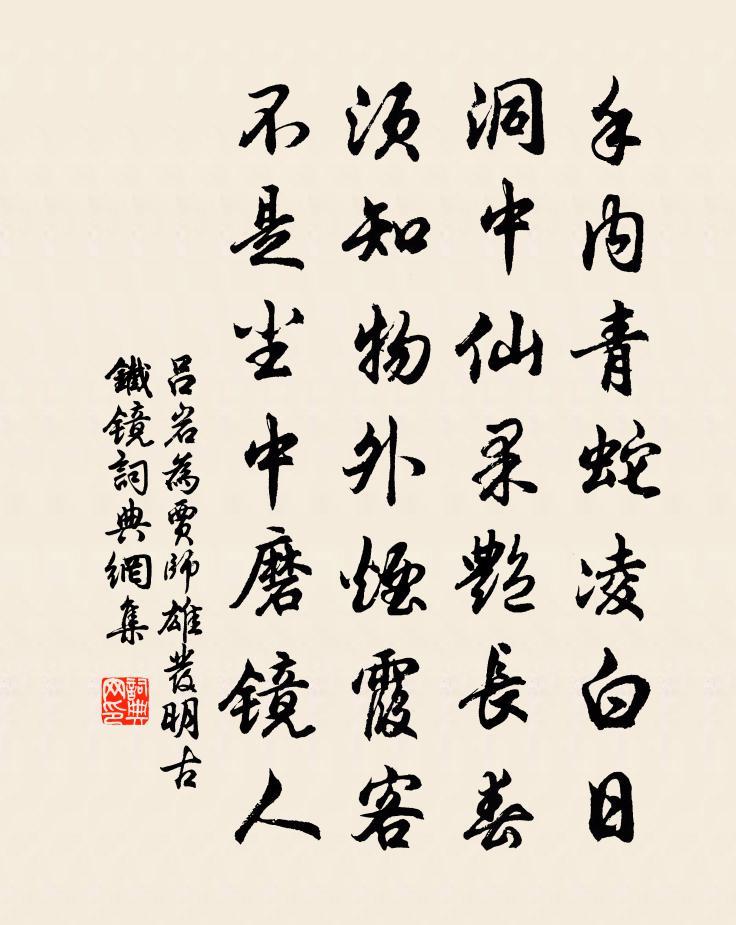 手内青蛇凌白日
洞中仙果艷長春
須知物外煙霞客
不是尘中磨镜人
吕岩為賈師雄發明古
鐵镜詞典網集
詞典网印